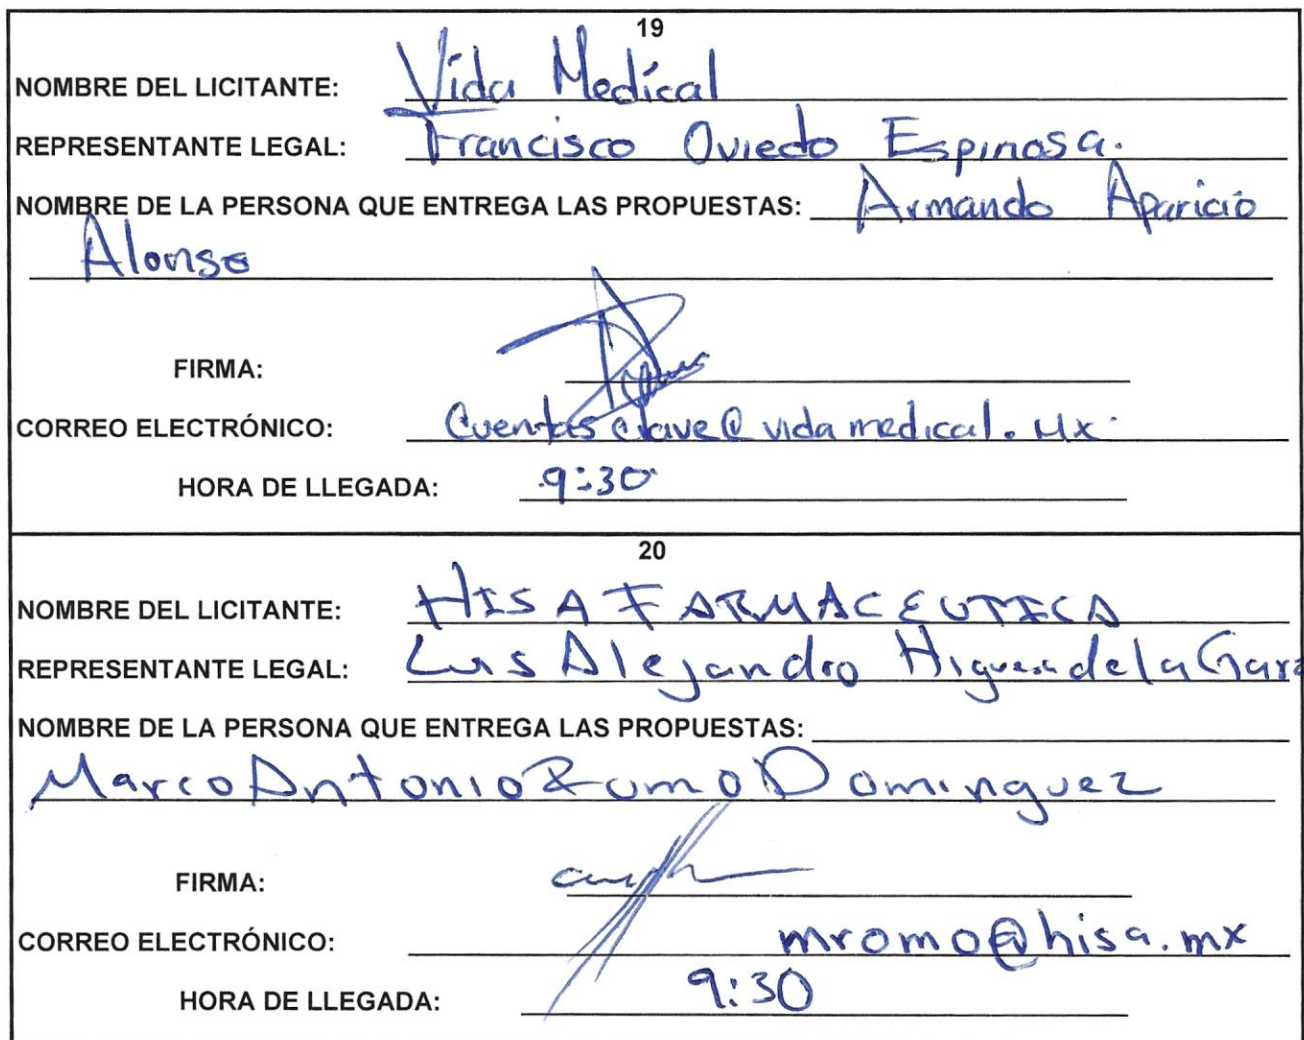 19
NOMBRE DEL LICITANTE: Vida Medical
REPRESENTANTE LEGAL: Francisco Oviedo Espinosa.
NOMBRE DE LA PERSONA QUE ENTREGA LAS PROPUESTAS: Armando Aparicio
Alonso
FIRMA:
CORREO ELECTRÓNICO: Cuentas clave@vidamedical.Mx
HORA DE LLEGADA: 9:30
20
NOMBRE DEL LICITANTE: HISA FARMACEUTICA
REPRESENTANTE LEGAL: Luis Alejandro Higuera de la Garz
NOMBRE DE LA PERSONA QUE ENTREGA LAS PROPUESTAS:
Marco Antonio Romo Dominguez
FIRMA:
CORREO ELECTRÓNICO: mromo@hisa.mx
HORA DE LLEGADA: 9:30